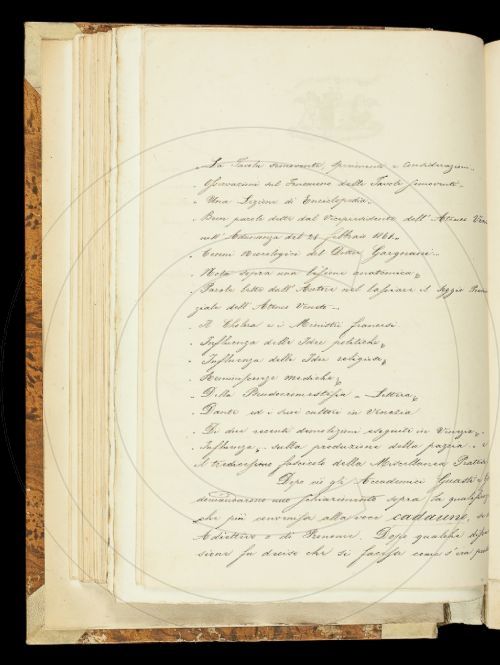 - La Tavola Semovente, Sperimenti e Considerazioni -
- Osservazioni sul Fenomeno delle Tavole Semoventi -
- Una Lezione di Enciclopedia -
- Brevi parole dette dal Vicepresidente dell'Ateneo Ven
nell'Adunanza del 28 febbrao 1861 -
- Cenni Necrologici del Dottor Gargnani -
- Nota sopra una lesione anatomica,
- Parole lette dall'Autore nel lasciare il Seggio
ziale dell'Ateneo Veneto -
- Il Cholera e i Ministri francesi
- Influenza delle Idee politiche,
- Influenza delle Idee religiose,
- Reminiscenze mediche,
- Della - Lettera,
- Dante ed i suoi cultori in Venezia
- Di due recenti demolizioni eseguite in Venezia -
- Influenza, sulla produzione della pazzia - e
il tredicesimo fascicolo della Miscellanea Pratica
Dopo ciò gli Accademici Guasti e
domandarono uno schiarimento sopra la qualifica
che più convenisse alla voce cadauno, se
Adiettivo o di Pronome. Dopo qualche
sione fu deciso che si facesse come s'era